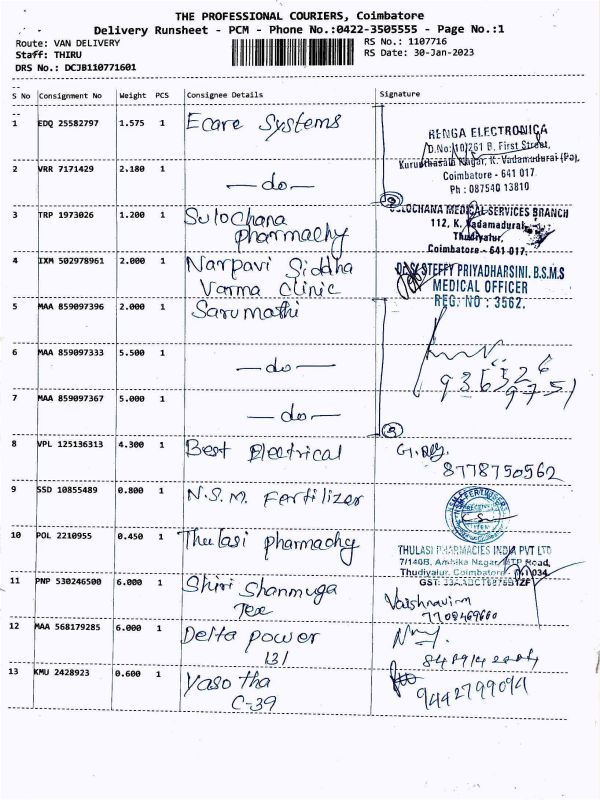 THE PROFESSIONAL COURIERS, Coimbatore
Delivery Runsheet - PCM - Phone No.:0422-3505555 - Page No.:1
Route: VAN DELIVERY RS No.: 1107716
Staff: THIRU RS Date: 30-Jan-2023
DRS No.: DCJB110771601
S No Consignment No Weight PCS Consignee Details Signature
1 EDQ 25582797 1.575 1 Ecare Systems
RENGA ELECTRONICA
D.No:10/261 B, First Street,
Kurupthasala Nagar, K. Vadamadurai (Po),
Coimbatore - 641 017.
Ph : 087540 13810
2 VRR 7171429 2.180 1 —do—
3 TRP 1973026 1.200 1 Sulochana
pharmachy
SULOCHANA MEDICAL SERVICES BRANCH
112, K. Vadamadurai,
Thudiyalur,
Coimbatore - 641 017.
4 IXM 502978961 2.000 1 Narpavi Siddha
Varma Clinic
STEFFY PRIYADHARSINI. B.S.M.S
MEDICAL OFFICER
REG. NO : 3562.
5 MAA 859097396 2.000 1 Sarumathi
6 MAA 859097333 5.500 1 —do—
7 MAA 859097367 5.000 1 —do—
8 VPL 125136313 4.300 1 Best Electrical
8778750562
9 SSD 10855489 0.800 1 N.S.M. Fertilizer
10 POL 2210955 0.450 1 Thulasi pharmachy
THULASI PHARMACIES INDIA PVT LTD
7/140B, Ambika Nagar, MTP Road,
Thudiyalur, Coimbatore - 641 034
11 PNP 530246500 6.000 1 Shiri Shanmuga
Tex
12 MAA 568179285 6.000 1 Delta power
131
13 KMU 2428923 0.600 1 Yasotha
C-39
9442799094